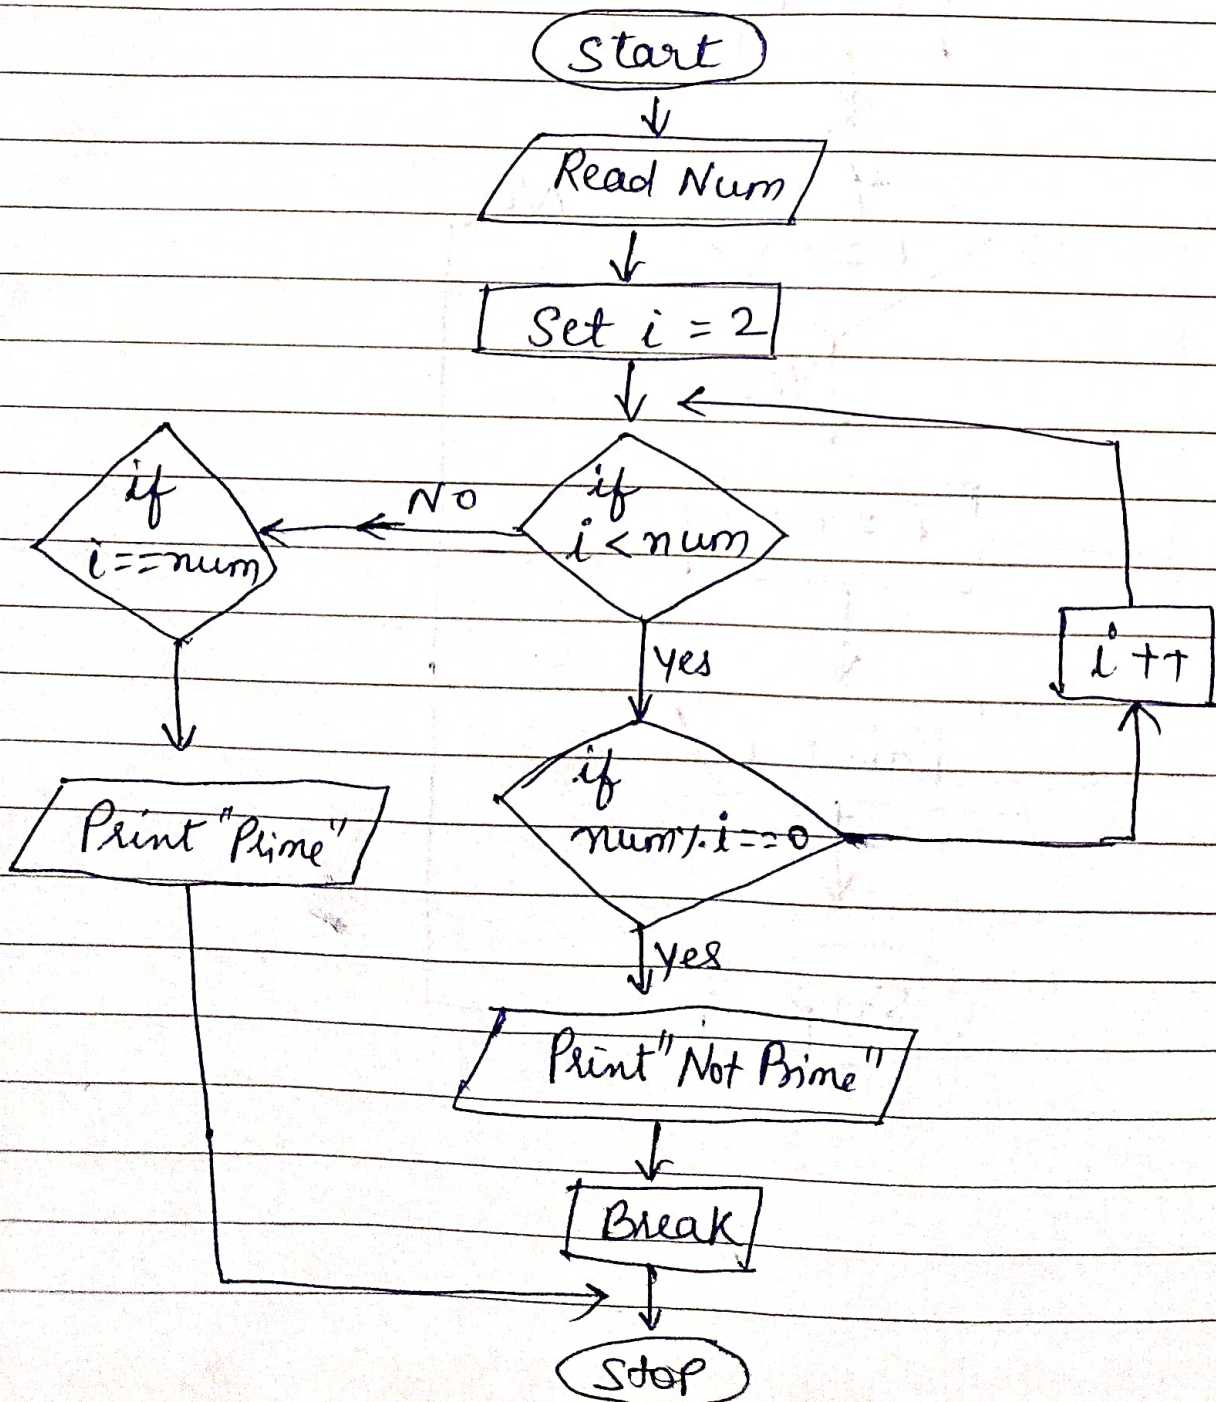 Start
Read Num
Set i = 2
if
i < num
No
if
i==num
yes
i ++
if
num%i==0
Print "Prime"
yes
Print "Not Prime"
Break
Stop